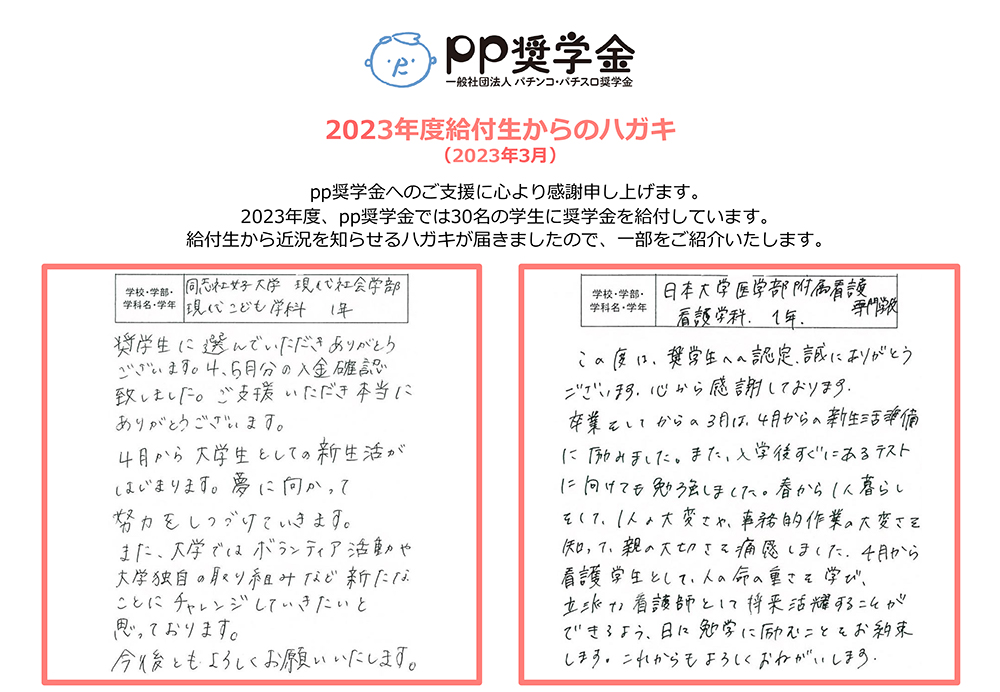 pp奨学金
一般社団法人 パチンコ・パチスロ奨学金
2023年度給付生からのハガキ
（2023年3月）
pp奨学金へのご支援に心より感謝申し上げます。
2023年度、pp奨学金では30名の学生に奨学金を給付しています。
給付生から近況を知らせるハガキが届きましたので、一部をご紹介いたします。
学校・学部・
学科名・学年
同志社女子大学 現代社会学部
現代こども学科 1年
奨学生に選んでいただきありがとう
ございます。4、5月分の入金確認
致しました。ご支援いただき本当に
ありがとうございます。
4月から大学生としての新生活が
はじまります。夢に向かって
努力をしつづけていきます。
また、大学ではボランティア活動や
大学独自の取り組みなど新たな
ことにチャレンジしていきたいと
思っております。
今後ともよろしくお願いいたします。
学校・学部・
学科名・学年
日本大学医学部附属看護
専門学校
看護学科. 1年.
この度は、奨学生への認定、誠にありがとう
ございます。心から感謝しております。
卒業をしてからの3月は、4月からの新生活準備
に励みました。また、入学後すぐにあるテスト
に向けても勉強しました。春から1人暮らし
をして、1人の大変さや、事務的作業の大変さを
知って、親の大切さを痛感しました。4月から
看護学生として、人の命の重さを学び、
立派な看護師として将来活躍することが
できるよう、日に勉学に励むことをお約束
します。これからもよろしくおねがいします.